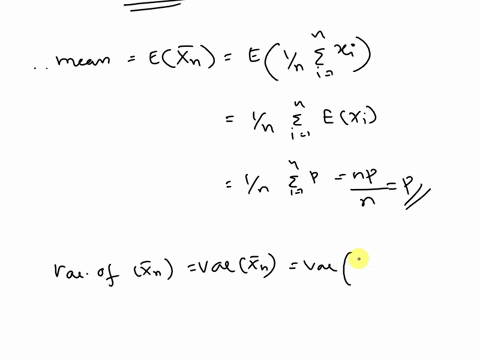 ∴ mean = E(X̄n) = E(1/n Σ_{i=}^{n} xi)
= 1/n Σ_{i=1}^{n} E(xi)
= 1/n Σ_{i=1}^{n} p = np/n = p //
Var. of (x̄n) = Var(x̄n) = Var(